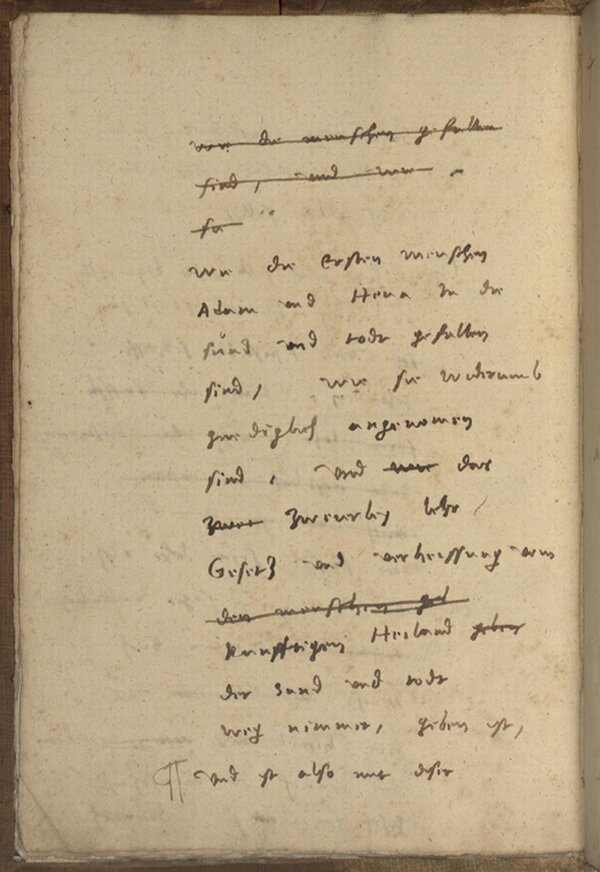 wie die menschen gefallen
sind, und wie
sie
wie die Ersten menschen
Adam und Heua In die
sünd und todt gefallen
sind, wie sie widerumb
gnediglich angenomen
sind, und wie das
zwei zweierley lehr,
Gesetz und verheissung vom
den menschen geb
kunfftigen Heiland geben
der Sund und todt
weg nemme, geben ist,
und ist also mit diser